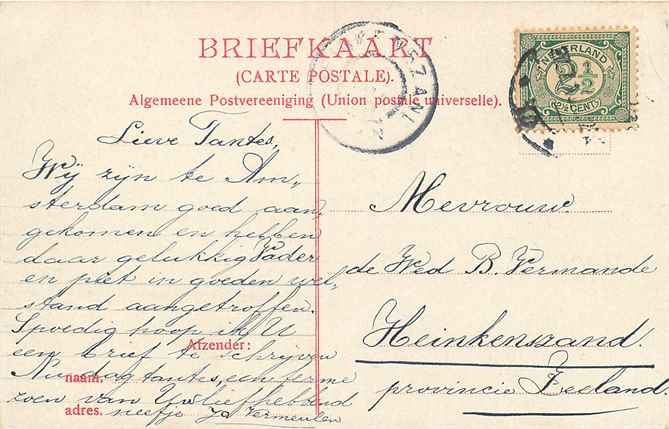 BRIEFKAART
(CARTE POSTALE).
Algemeene Postvereeniging (Union postale universelle).
NEDERLAND
2½
2½ CENT
Lieve Tantes,
Wij zijn te Am„
sterdam goed aan„
gekomen en hebben
daar gelukkig Vader
en piet in goeden wel„
stand aangetroffen.
Spoedig hoop ik U
een brief te schrijven
Nu dag tantes, een ferme
zoen van Uw liefhebbend
neefje Js Vermeulen
Afzender:
naam.
adres.
Mevrouw.
de Wed B. Vermande
Heinkenszand.
provincie Zeeland.